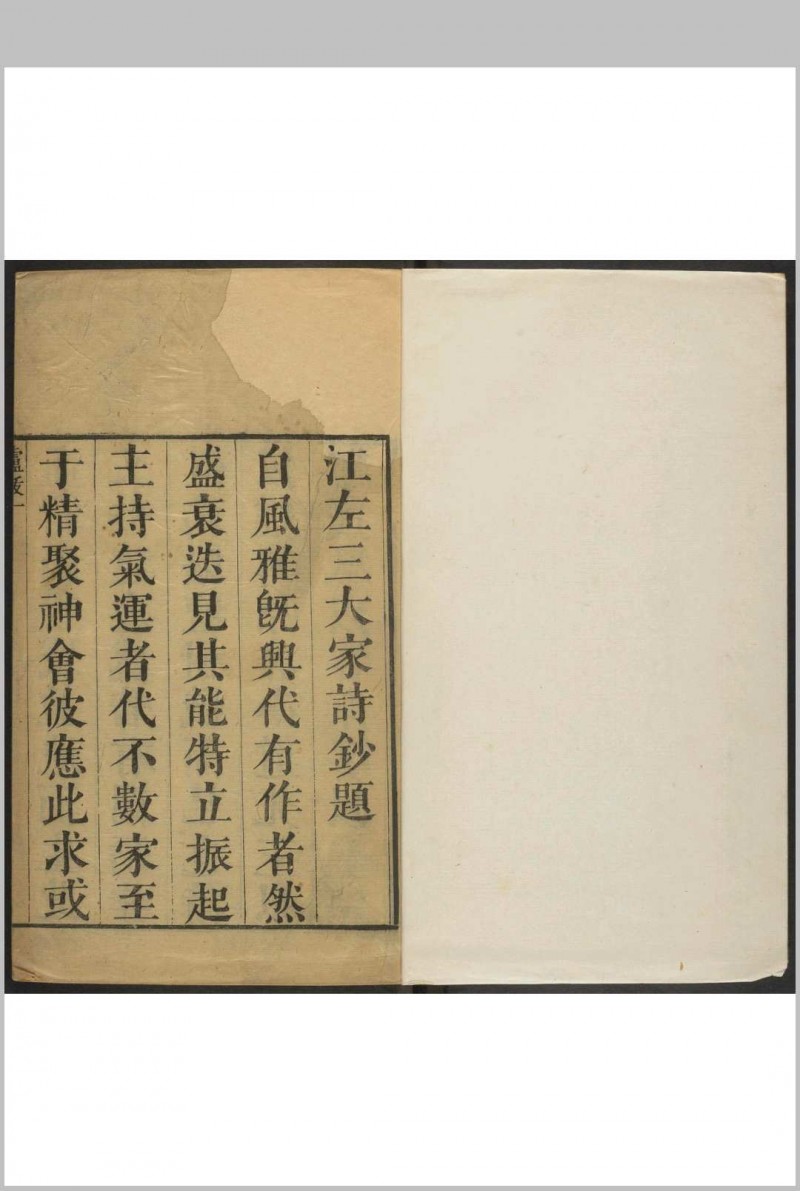 江左三大家詩鈔題
自風雅旣興代有作者然
盛衰迭見其能特立振起
主持氣運者代不數家至
于精聚神會彼應此求或